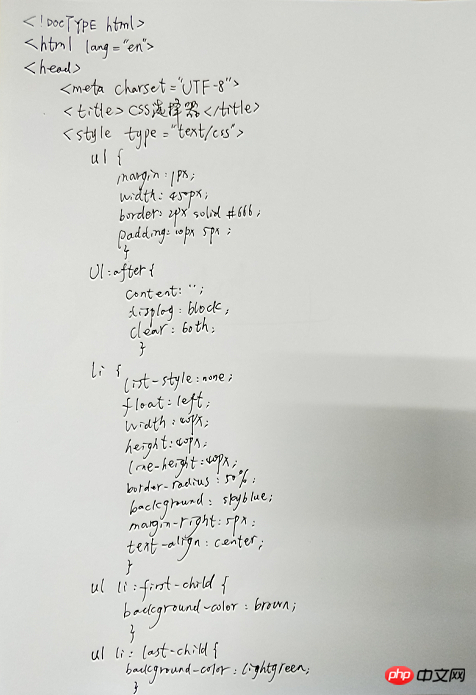 <!DOCTYPE html>
<html lang="en">
<head>
<meta charset="UTF-8">
<title>CSS选择器</title>
<style type="text/css">
ul {
margin:1px;
width: 450px;
border: 2px solid #666;
padding: 10px 5px;
}
Ul:after{
content: '';
display: block;
clear: both;
}
li {
list-style:none;
float: left;
width: 40px;
height:40px;
line-height:40px;
border-radius: 50%;
background: skyblue;
margin-right: 5px;
text-align: center;
}
ul li:first-child {
background-color: brown;
}
ul li: last-child{
background-color: lightgreen;
}
php 中文网